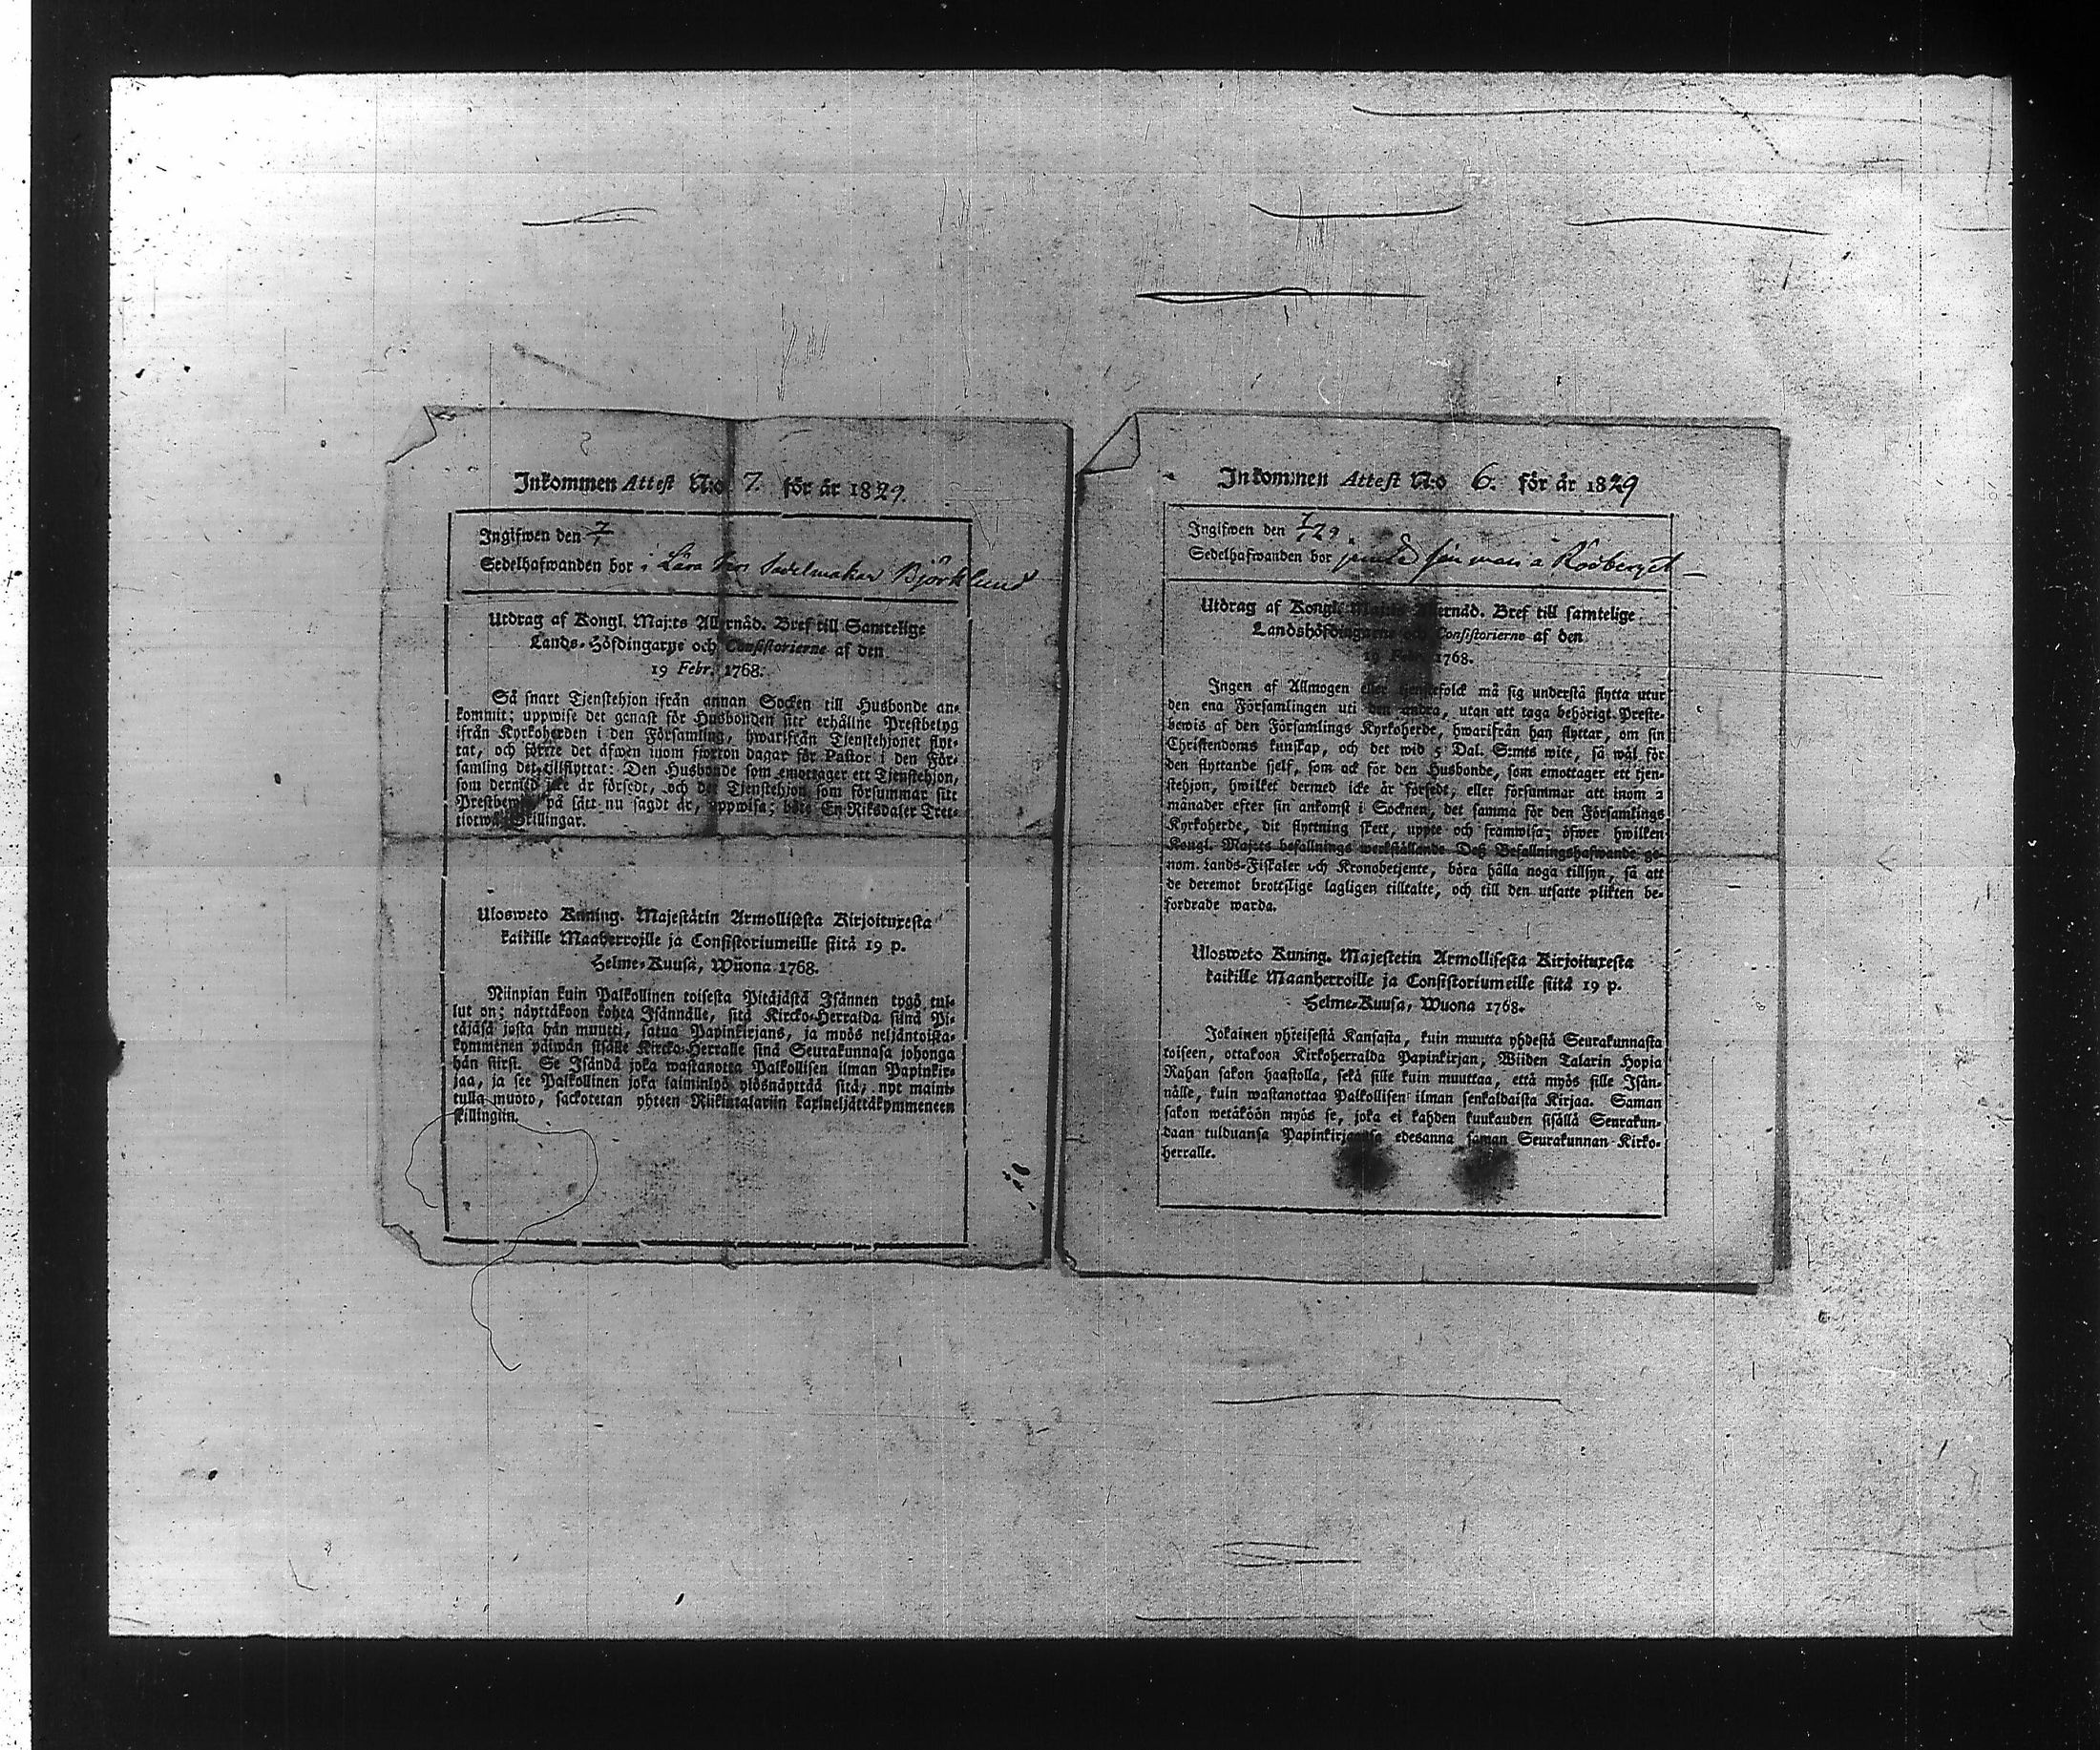 Inkommen Attest N:o 7. för år 1829.
Ingifwen den 7/1
Sedelhafwanden bor i Lära hos Sadelmakar Björklund
Utdrag af Kongl. Maj:ts Allernåd. Bref till Samtelige
Lands-Höfdingarne och Consistorierne af den
19 Febr. 1768.
Så snart Tjenstehjon ifrån annan Socken till Husbonde an-
kommit; uppwise det genast för Husbonden sitt erhållne Prestbetyg
ifrån Kyrkoherden i den Församling, hwarifrån Tjenstehjonet flyt-
tat, och förete det äfwen inom fjorton dagar för Pastor i den För-
samling det tillflyttat: Den Husbonde som emottager ett Tjenstehjon,
som dermed icke är försedt, och det Tjenstehjon som försummar sitt
Prestbewis på sätt nu sagdt är, uppwisa; böte En Riksdaler Tret-
tiotwå Skillingar.
Ulosweto Kuning. Majestätin Armollisesta Kirjoituxesta
kaikille Maaherroille ja Consistoriumeille siitä 19 p.
Helme-Kuusa, Wuona 1768.
Niinpian kuin Palkollinen toisesta Pitäjästä Isännen tygö tul-
lut on; näyttäkoon kohta Isännälle, sitä Kircko-Herralda siinä Pi-
täjäsä josta hän muutti, satua Papinkirjans, ja myös neljäntoista-
kymmenen päiwän sisälle Kircko-Herralle sinä Seurakunnasa johonga
hän siirsi. Se Isändä joka wastanotta Palkollisen ilman Papinkir-
jaa, ja see Palkollinen joka laiminlyö ylösnäyttää sitä, nyt maini-
tulla muoto, sackotetan yhteen Riikintalariin kaxineljättäkymmeneen
skillingiin.
Inkommen Attest N:o 6. för år 1829
Ingifwen den 7/1 29.
Sedelhafwanden bor jemte sin man å Rödberget
Utdrag af Kongl. Maj:ts Allernåd. Bref till samtelige
Landshöfdingarne och Consistorierne af den
19 Febr. 1768.
Ingen af Allmogen eller tjenstefolck må sig understå flytta utur
den ena Församlingen uti den andra, utan att taga behörigt Preste-
bewis af den Församlings Kyrkoherde, hwarifrån han flyttar, om sin
Christendoms kunskap, och det wid 5 Dal. S:mts wite, så wäl för
den flyttande sjelf, som ock för den Husbonde, som emottager ett tjen-
stehjon, hwilket dermed icke är försedt, eller försummar att inom 2
månader efter sin ankomst i Socknen, det samma för den Församlings
Kyrkoherde, dit flyttning skett, uppte och framwisa; öfwer hwilken
Kongl. Maj:ts befallnings werkställande Deß Befallningshafwande ge-
nom Lands-Fiskaler och Kronobetjente, böra hålla noga tillsyn, så att
de deremot brottslige lagligen tilltalte, och till den utsatte plikten be-
fordrade warda.
Ulosweto Kuning. Majestetin Armollisesta Kirjoituxesta
kaikille Maanherroille ja Consistoriumeille siitä 19 p.
Helme-Kuusa, Wuona 1768.
Jokainen yhteisestä Kansasta, kuin muutta yhdestä Seurakunnasta
toiseen, ottakoon Kirkoherralda Papinkirjan, Wiiden Talarin Hopia
Rahan sakon haastolla, sekä sille kuin muuttaa, että myös sille Isän-
nälle, kuin wastanottaa Palkollisen ilman senkaldaista Kirjaa. Saman
sakon wetäköön myös se, joka ei kahden kuukauden sisällä Seurakun-
daan tulduansa Papinkirjaansa edesanna saman Seurakunnan Kirko-
herralle.